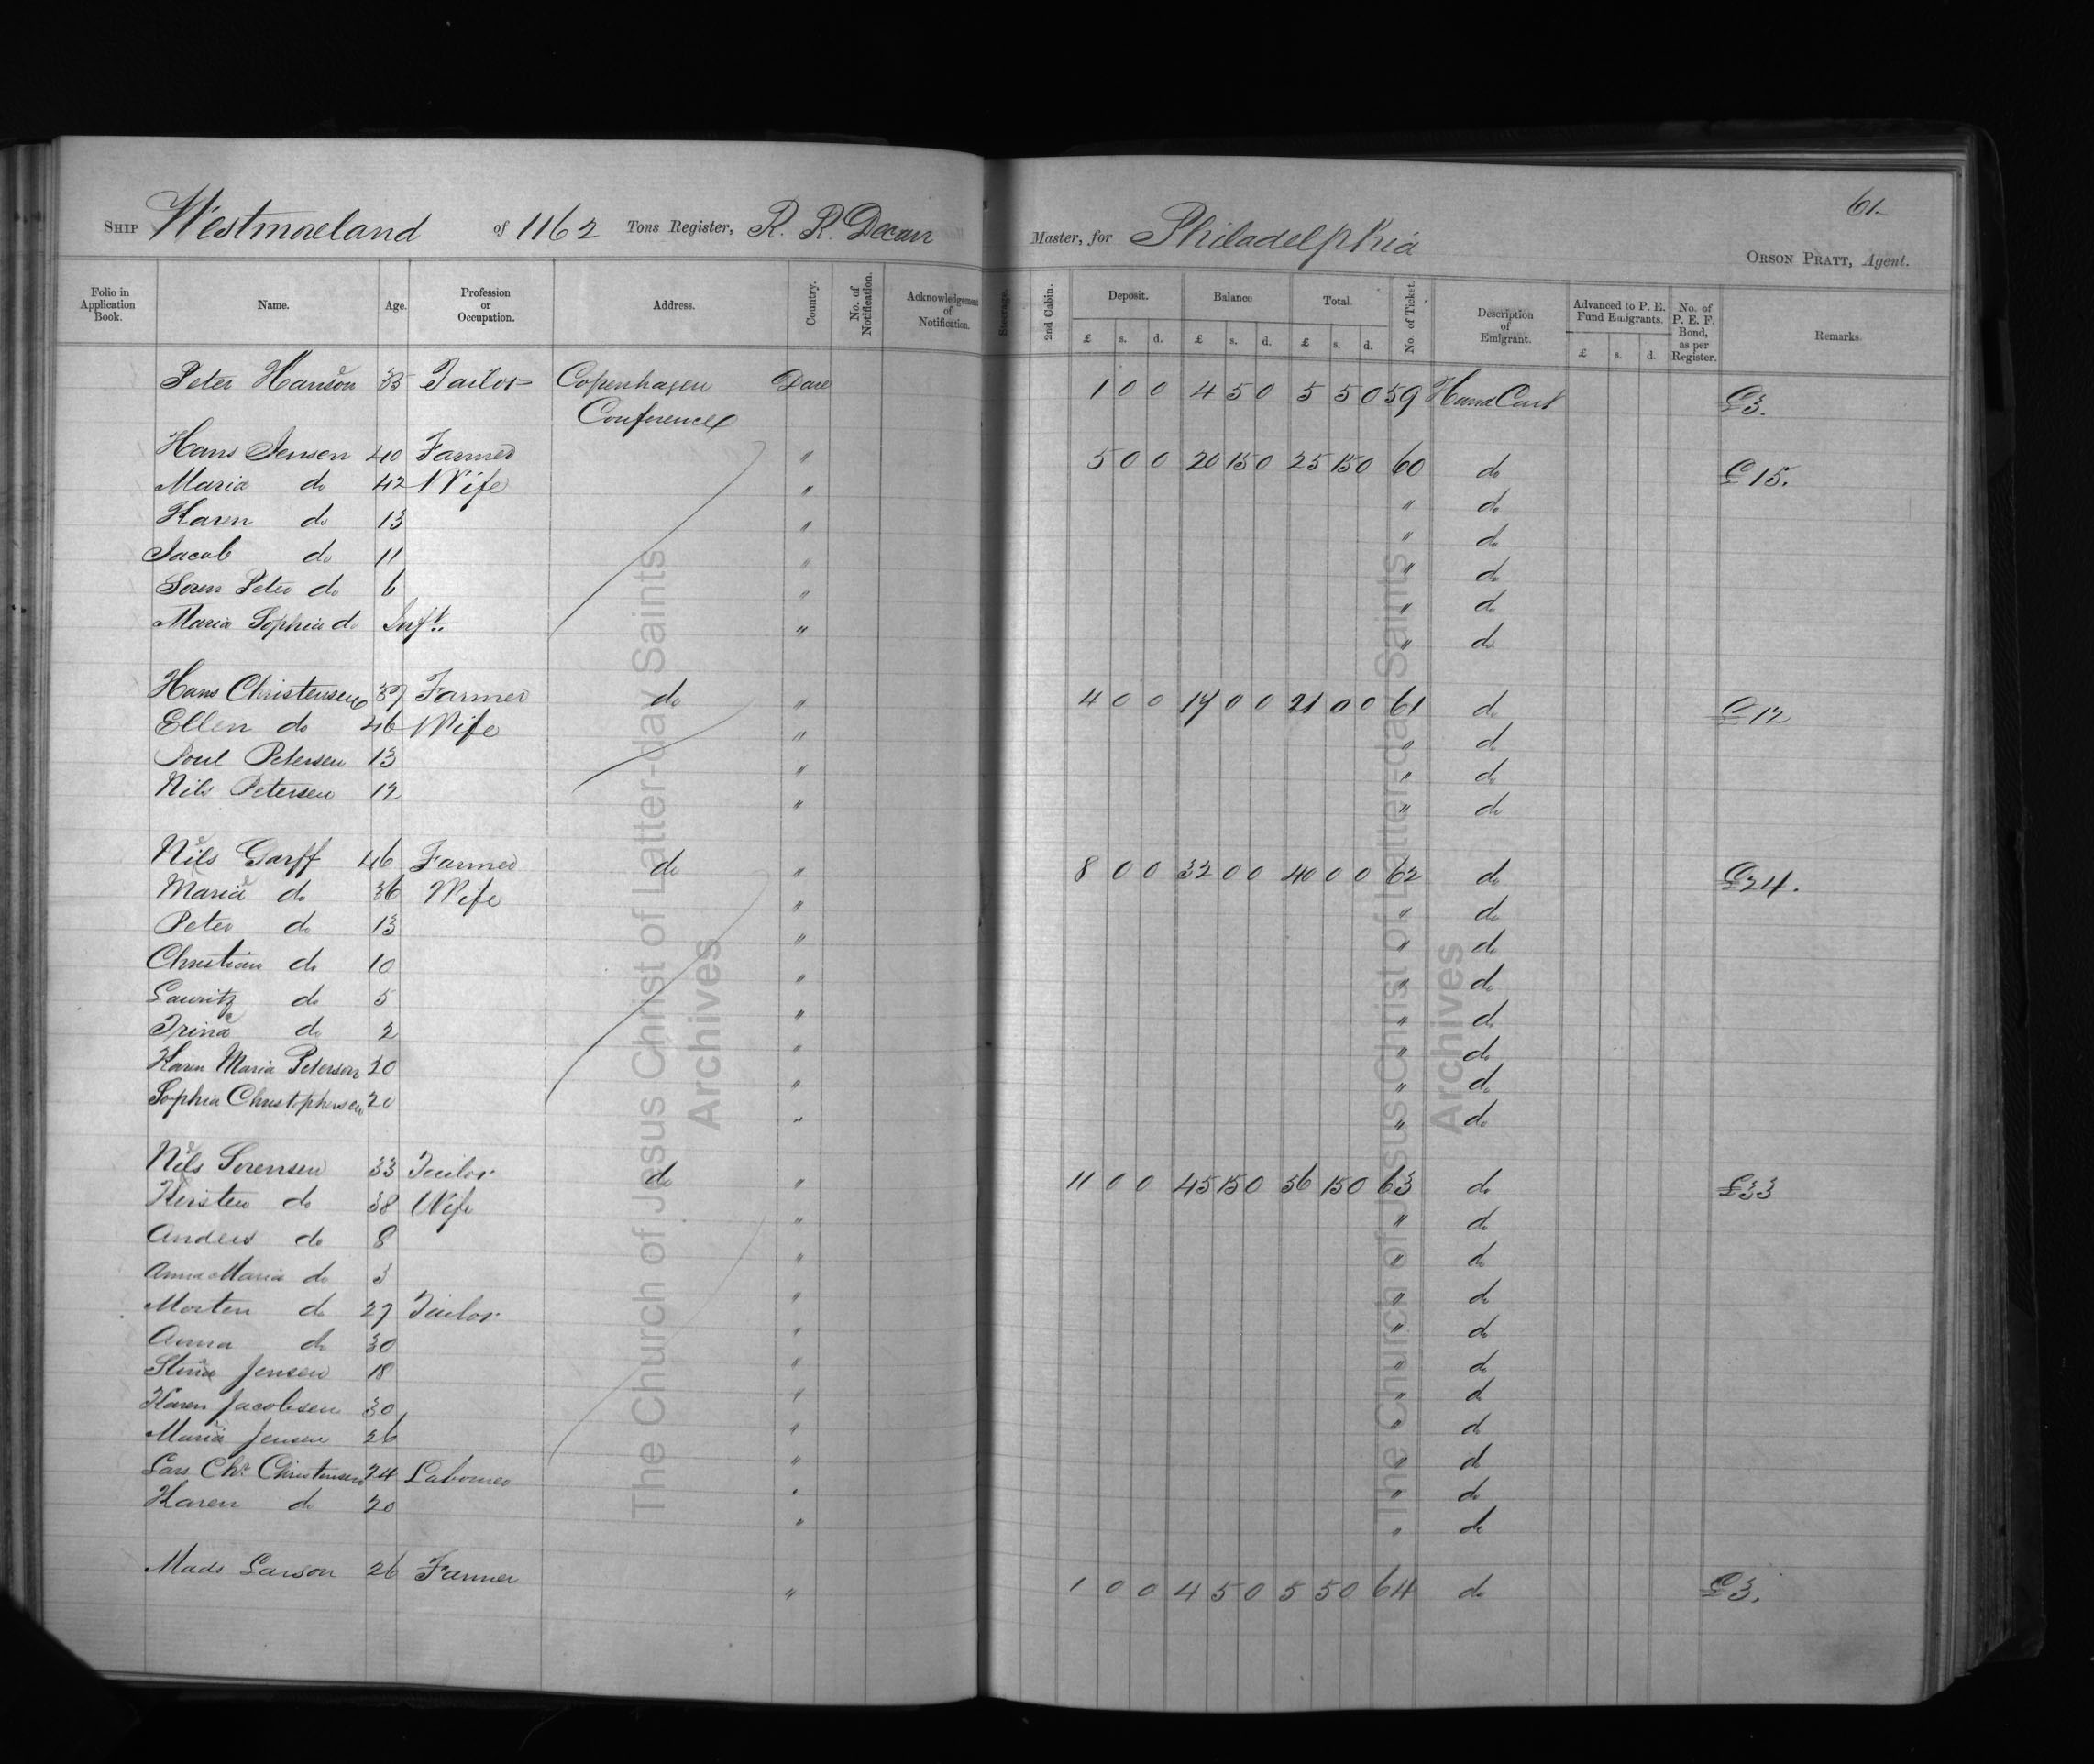 61.
SHIP Westmoreland of 1162 Tons Register, R. R. Decan Master, for Philadelphia ORSON PRATT, Agent.
Folio in Application Book. Name. Age. Profession or Occupation. Address. Country. No. of Notification. Acknowledgement of Notification. Steerage. 2nd Cabin. Deposit. Balance Total No. of Ticket. Description of Emigrant. Advanced to P. E. Fund Emigrants. No. of P. E. F. Bond, as per Register. Remarks
£ s. d. £ s. d. £ s. d. £ s. d.
Peter Hanson 35 Tailor Copenhagen Dane 1 0 0 4 5 0 5 5 0 59 Hand Cart £3.
Conference
Hans Jensen 40 Farmer " 5 0 0 20 15 0 25 15 0 60 do £15.
Maria do 42 Wife " " do
Karen do 13 " " do
Jacob do 11 " " do
Soren Peter do 6 " " do
Maria Sophia do Inft. " " do
Hans Christensen 37 Farmer do " 4 0 0 17 0 0 21 0 0 61 do £12
Ellen do 46 Wife " " do
Poul Petersen 13 " " do
Nils Petersen 12 " " do
Nils Garff 46 Farmer do " 8 0 0 32 0 0 40 0 0 62 do £24.
Maria do 36 Wife " " do
Peter do 13 " " do
Christian do 10 " " do
Lauritz do 5 " " do
Trina do 2 " " do
Karen Maria Peterson 20 " " do
Sophia Christophersen 20 " " do
Nils Sorensen 33 Tailor do " 11 0 0 45 15 0 56 15 0 63 do £33
Kirsten do 38 Wife " " do
Anders do 8 " " do
Anna Maria do 3 " " do
Morten do 27 Tailor " " do
Anna do 30 " " do
Stina Jensen 18 " " do
Karen Jacobsen 30 " " do
Maria Jensen 26 " " do
Lars Chr. Christensen 24 Labourer " " do
Karen do 20 " " do
Mads Larson 26 Farmer " 1 0 0 4 5 0 5 5 0 64 do £3.
The Church of Jesus Christ of Latter-day Saints
Archives
The Church of Jesus Christ of Latter-day Saints
Archives